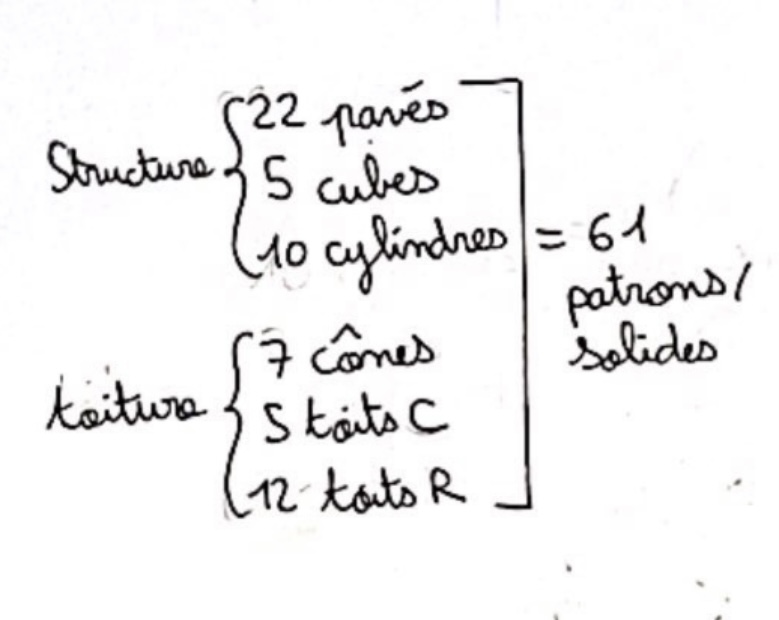 Structure
22 pavés
5 cubes
10 cylindres
toiture
7 cônes
5 toits C
12 toits R
= 61
patrons/
solides